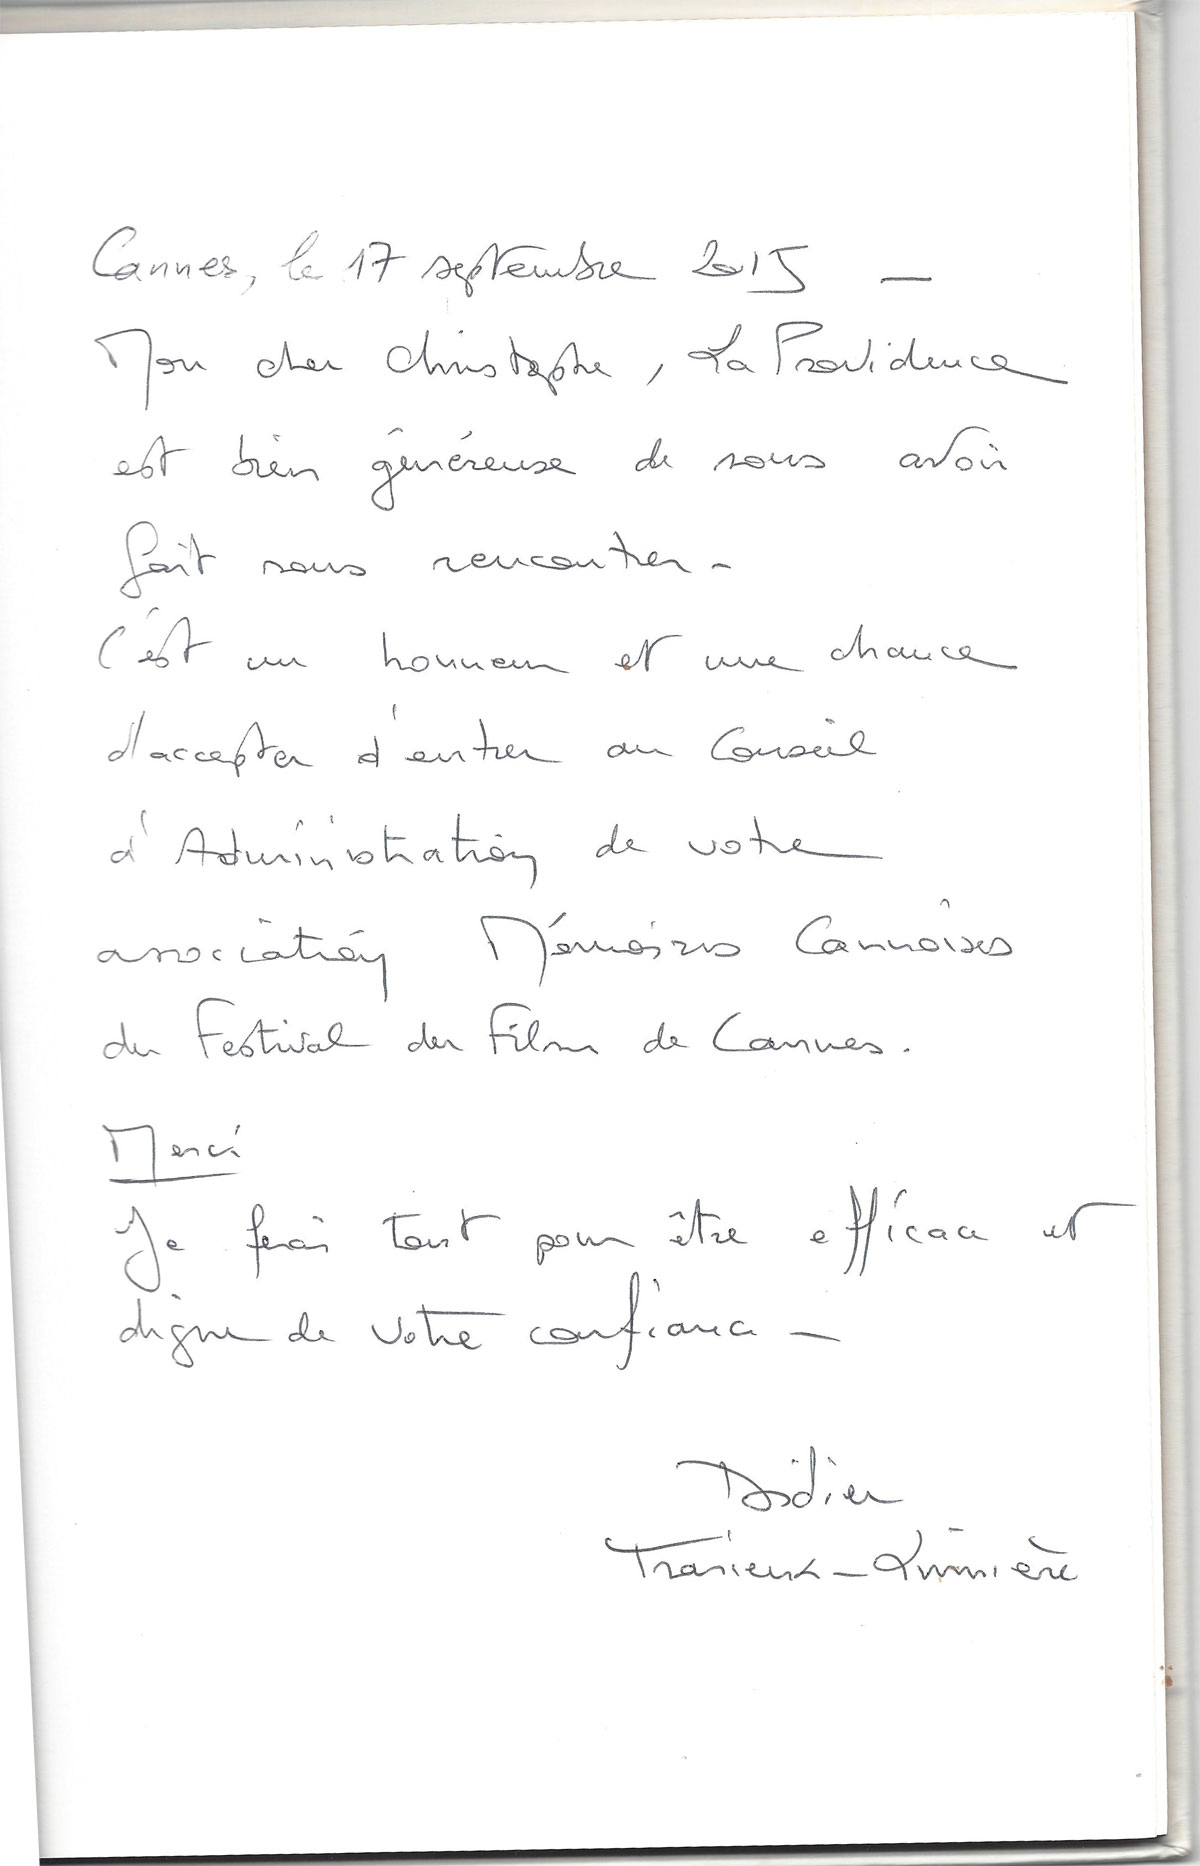 Cannes, le 17 septembre 2015 —
Mon cher Christophe, La Providence
est bien généreuse de nous avoir
fait nous rencontrer -
C'est un honneur et une chance
d'accepter d'entrer au Conseil
d'Administration de votre
association Mémoires Cannoises
du Festival du Film de Cannes.
Merci
Je ferai tout pour être efficace et
digne de votre confiance —
Didier
Trarieux-Lumière